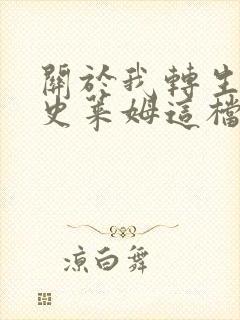 關於我轉生
史萊姆這檔
涼白舞